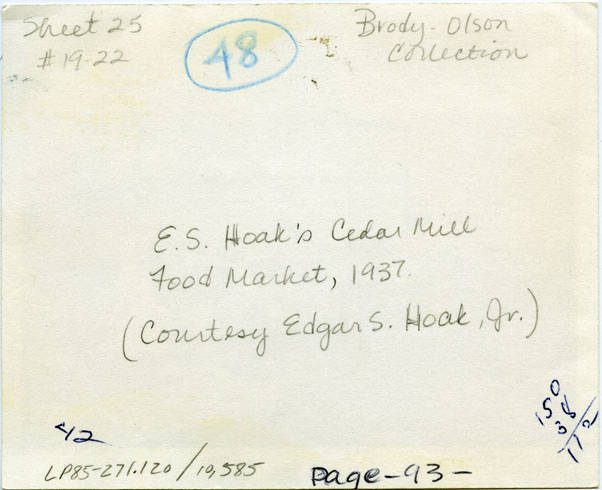 Sheet 25
#19-22
48
Brody-Olson
Collection
E.S. Hoak's Cedar Mill
Food Market, 1937.
(Courtesy Edgar S. Hoak, Jr.)
42
LP85-271.120/19,585
Page-93-
150
38
112